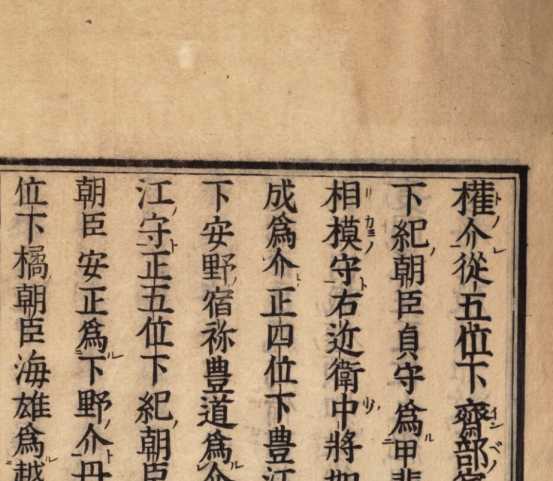 權介從五位下齋部
下紀朝臣貞守為甲
相模守右近衛中將
成爲介正四位下豊江
下安野宿祢豊道爲介
江守正五位下紀朝臣
朝臣安正爲下野介
位下橘朝臣海雄爲越